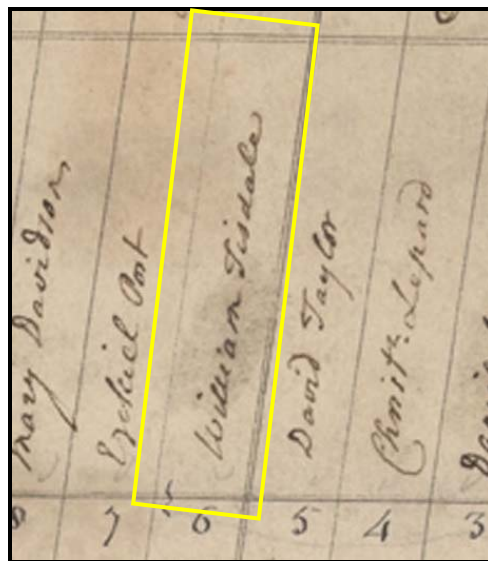 Mary Davidson
Ezekiel Post
William Tisdale
David Taylor
Christr. Lepard
8 7 6 5 4 3